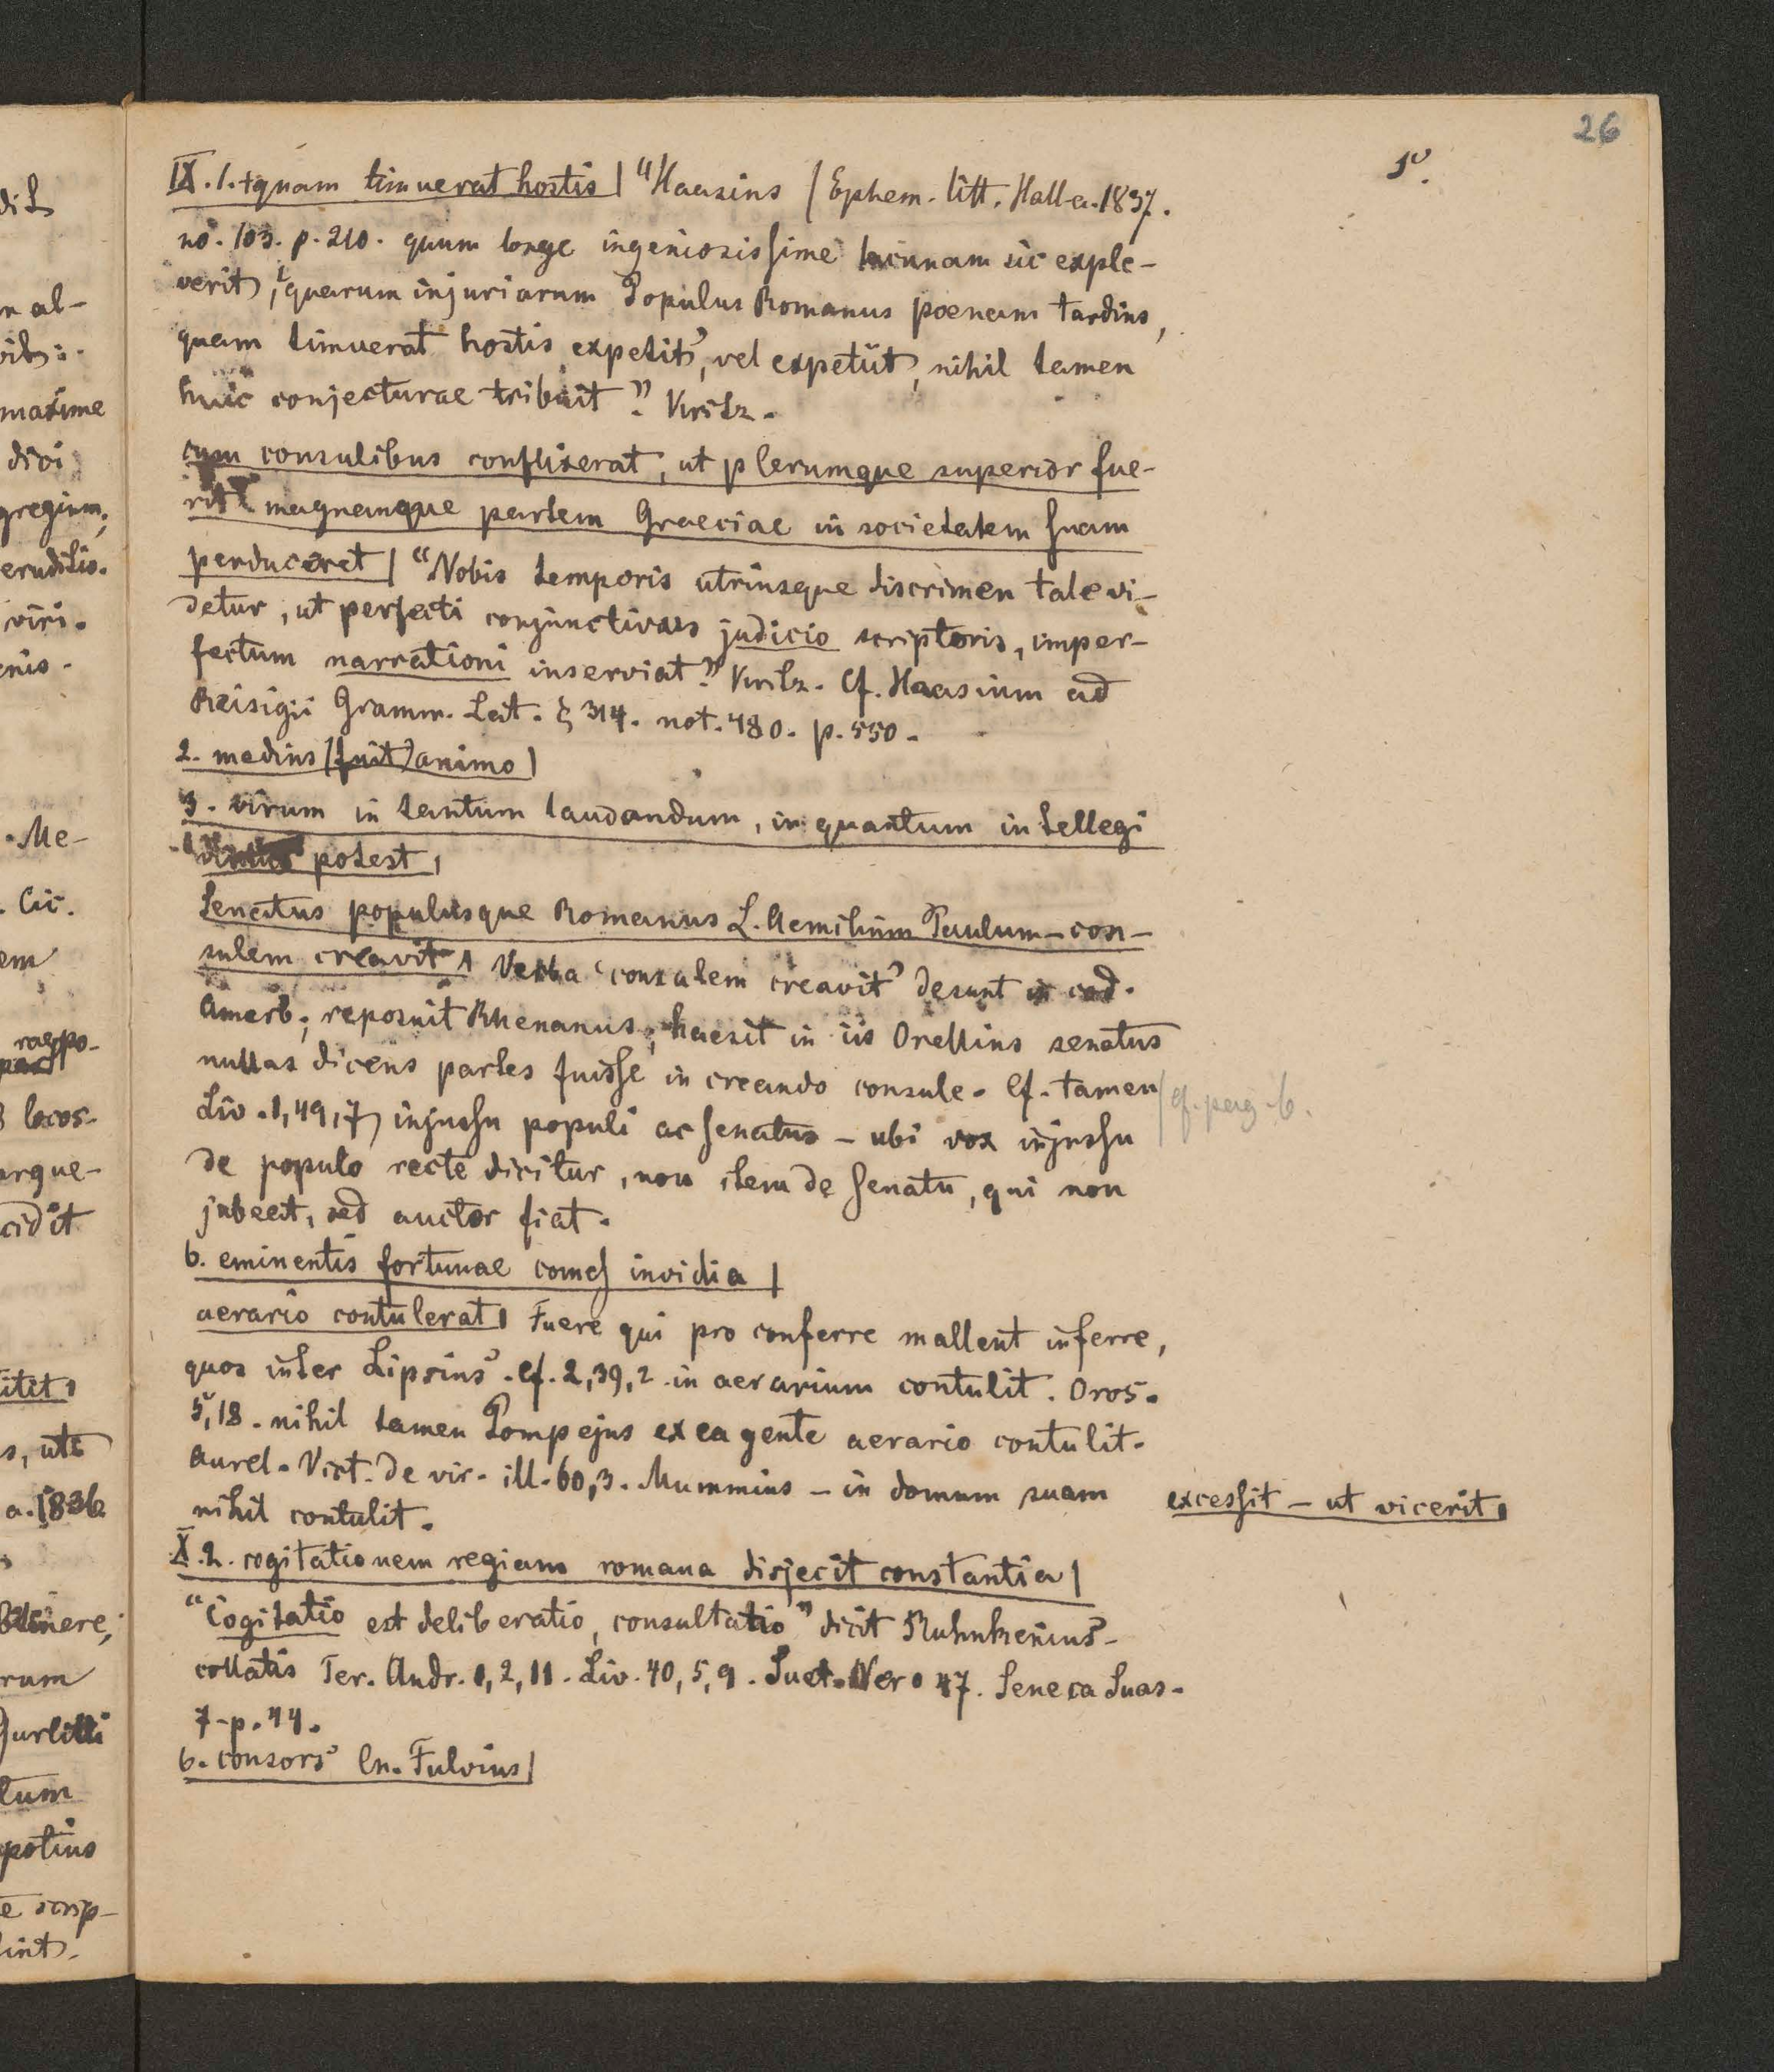 26
5º.
IX.1.+quam timuerat hostis| "Haasius (Ephem. litt. Hall. a. 1837.
no. 103. p. 210. quum longe ingeniosissime lacunam sic exple-
verit, 'quarum injuriarum Populus Romanus poenam tardius,
quam timuerat hostis expetit', vel expetiit, nihil tamen
huic conjecturae tribuit." Kritz.
cum consulibus conflixerat, ut plerumque superior fue-
rit magnamque partem Graeciae in societatem suam
perduceret| "Nobis temporis utriusque discrimen tale vi-
detur, ut perfecti conjunctivus judicio scriptoris, imper-
fectum narrationi inserviat." Kritz. Cf. Haasium ad
Reisigii Gramm. Lat. § 314. not. 480. p. 550.
2. medius (fuit) animo|
3. virum in tantum laudandum, in quantum intellegi
virtus potest|
Senatus populusque Romanus L. Aemilium Paulum - con-
sulem creavit| Verba 'consulem creavit' desunt in cod.
Amerb.; reposuit Rhenanus; haesit in iis Orellius senatus
nullas dicens partes fuisse in creando consule. Cf. tamen
Liv. 1,49,7, injussu populi ac senatus - ubi vox injussu
de populo recte dicitur, non item de senatu, qui non
jubeat, sed auctor fiat.
cf. pag. 6.
6. eminentis fortunae comes invidia|
aerario contulerat| Fuere qui pro conferre mallent inferre,
quos inter Lipsius. Cf. 2,39,2 in aerarium contulit. Oros.
5,18. nihil tamen Pompejus ex ea gente aerario contulit.
Aurel. Vict. de vir. ill. 60,3. Mummius - in domum suam
nihil contulit.
excessit - ut vicerit|
X.2. cogitationem regiam romana disjecit constantia|
"Cogitatio est deliberatio, consultatio" dicit Ruhnkenius
collatis Ter. Andr. 1,2,11. Liv. 40,5,9. Suet. Nero 47. Seneca Suas.
7. p. 44.
6. consors Cn. Fulvius|